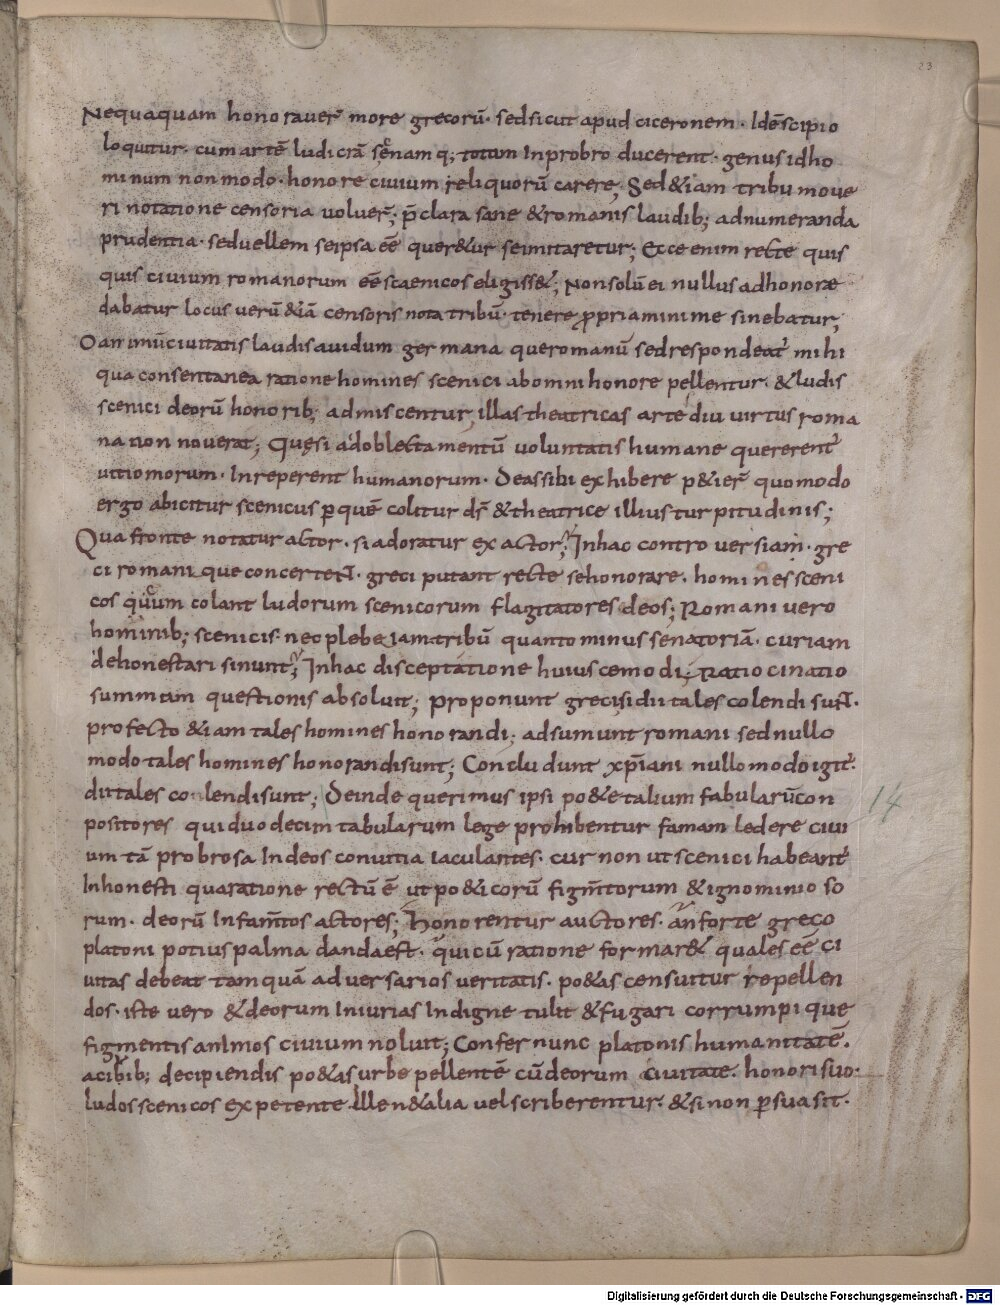 23
Nequaquam honorauer̄ more grecorū· sed sicut apud ciceronem· Idē scipio
loquitur· cum artē ludicrā scēnam q; totam In probro ducerent· genus id ho
minum non modo· honore ciuium reliquorū carere; Sed &iam tribu moue
ri notatione censoria voluer̄; p̄clara sane & romanis laudib; adnumeranda
prudentia· sed uellem se ipsa eē quer&ur se imitaretur; Ecce enim recte quis
quis ciuium romanorum eē staenicos eligiss&; Non solū ei nullus ad honorē
dabatur locus uerū &iā censoris nota tribū tenere ꝓpria minime sinebatur;
O animū ciuitatis laudis auidum germana que romanū sed respondeat̄ mihi
qua consentanea ratione homines scenici ab omni honore pellentur· & ludis
scenici deorū honorib; admiscentur, illas theatricas artē diu uirtus roma
na non nouerat; Quęsi ad oblectamentū voluntatis humane quererent̄
uitio morum· Inreperent humanorum· Deas sibi exhibere p&ier̄ quomodo
ergo abicitur scenicus ꝑ quē colitur ds̄ & theatrice illius turpitudinis;
Qua fronte notatur actor· si adoratur exactor; In hac controuersiam· gre
ci romani que concertent· greci putant recte se honorare· homines sceni
cos qūum colant ludorum scenicorum flagitatores deos; Romani uero
hominib; scenicis· nec plebeiam tribū quanto minus senatoriā· curiam
dehonestari sinunt; In hac disceptatione huiuscemodi; Ratiocinatio
summam questionis absoluit; proponunt greci; si dii tales colendi sunt·
profecto &iam tales homines honorandi; adsumunt romani sed nullo
modo tales homines honorandi sunt; Concludunt xp̄iani nullo modo igit̄·
dii tales colendi sunt; Deinde querimus ipsi po&e talium fabularū con
positores qui duodecim tabularum lege prohibentur famam ledere ciui
um tā probrosa In deos conuitia iaculantes· cur non ut scenici habeant̄
Inhonesti qua ratione rectū ē ut po&icorū figm̄torum & ignominioso
rum· deorū Infam̄tos actores; Honorentur auctores· an forte greco
platoni potius palma danda est· qui cū ratione formar& quales eē ci
uitas debeat tamquā aduersarios ueritatis· po&as censuitur repellen
dos· iste uero & deorum Iniurias Indigne tulit & fugari corrumpi que
figmentis animos ciuium noluit; Confer nunc platonis humanitatē·
a cibib; decipiendis po&as urbe pellentē cū deorum ciuitate· honori suo·
ludos scenicos expetente Ille n& alia uel scriberentur· & si non ꝑsuasit·
14
Digitalisierung gefördert durch die Deutsche Forschungsgemeinschaft - DFG